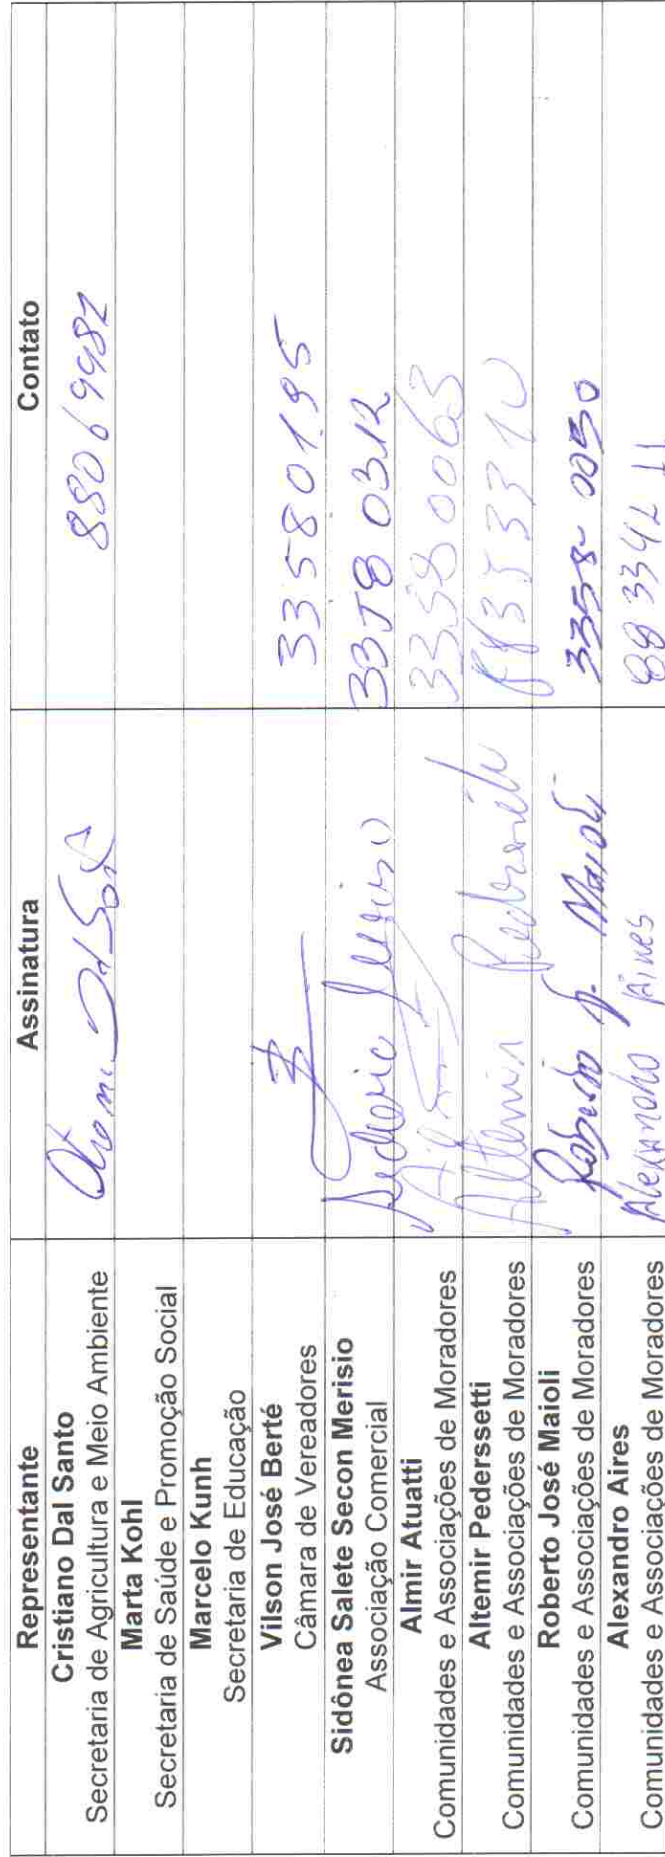 Representante Assinatura Contato
Cristiano Dal Santo
Secretaria de Agricultura e Meio Ambiente
88069982
Marta Kohl
Secretaria de Saúde e Promoção Social
Marcelo Kunh
Secretaria de Educação
Vilson José Berté
Câmara de Vereadores
33580195
Sidônea Salete Secon Merisio
Associação Comercial
3358 0312
Almir Atuatti
Comunidades e Associações de Moradores
33580063
Altemir Pederssetti
Comunidades e Associações de Moradores
Altemir
Roberto José Maioli
Comunidades e Associações de Moradores
Roberto J. Maioli 3358-0050
Alexandro Aires
Comunidades e Associações de Moradores
Alexandro Aires